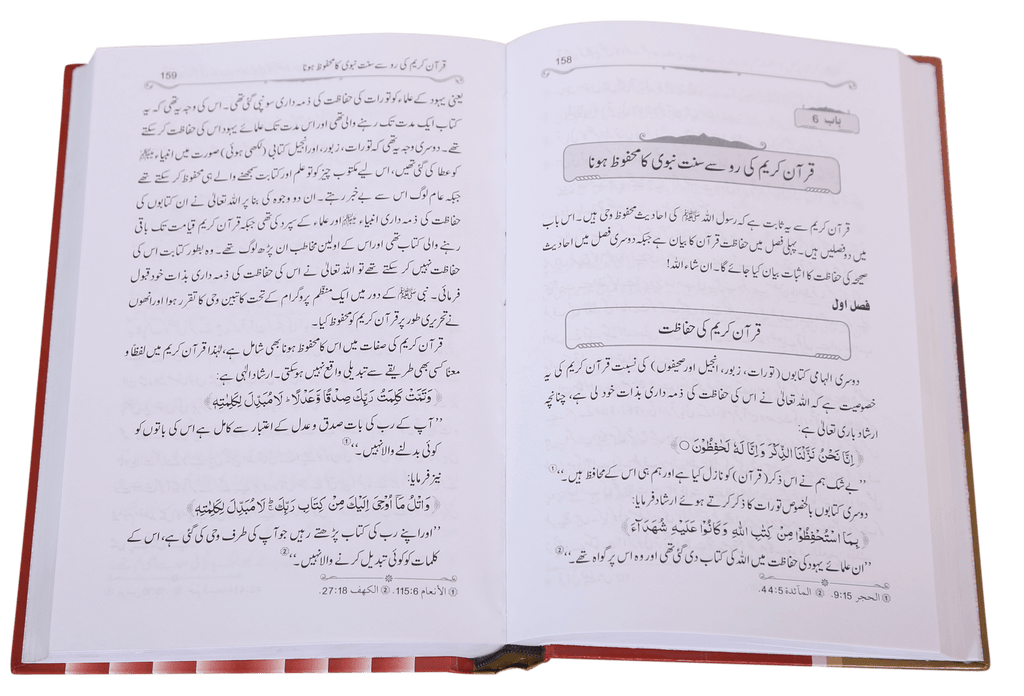 158
باب 6
قرآن کریم کی رو سے سنت نبوی کا محفوظ ہونا
قرآن کریم سے یہ ثابت ہے کہ رسول اللہ ﷺ کی احادیث محفوظ وحی ہیں۔ اس باب
میں دو فصلیں ہیں۔ پہلی فصل میں حفاظت قرآن کا بیان ہے جبکہ دوسری فصل میں احادیث
صحیحہ کی حفاظت کا اثبات بیان کیا جائے گا۔ ان شاء اللہ!
فصل اول
قرآن کریم کی حفاظت
دوسری الہامی کتابوں (تورات، زبور، انجیل اور صحیفوں) کی نسبت قرآن کریم کی یہ
خصوصیت ہے کہ اللہ تعالیٰ نے اس کی حفاظت کی ذمہ داری بذات خود لی ہے، چنانچہ
ارشاد باری تعالیٰ ہے:
﴿ اِنَّا نَحْنُ نَزَّلْنَا الذِّكْرَ وَ اِنَّا لَهٗ لَحٰفِظُوْنَ ○ ﴾
”بے شک ہم نے اس ذکر (قرآن) کو نازل کیا ہے اور ہم ہی اس کے محافظ ہیں۔“①
دوسری کتابوں بالخصوص تورات کا ذکر کرتے ہوئے ارشاد فرمایا:
﴿ بِمَا اسْتُحْفِظُوْا مِنْ كِتٰبِ اللّٰهِ وَ كَانُوْا عَلَيْهِ شُهَدَآءَ ﴾
”ان علمائے یہود کی حفاظت میں اللہ کی کتاب دی گئی تھی اور وہ اس پر گواہ تھے۔“②
① الحجر 9:15. ② المآئدة 44:5.
قرآن کریم کی رو سے سنت نبوی کا محفوظ ہونا
159
یعنی یہود کے علماء کو تورات کی حفاظت کی ذمہ داری سونپی گئی تھی۔ اس کی وجہ یہ تھی کہ یہ
کتاب ایک مدت تک رہنے والی تھی اور اس مدت تک علمائے یہود اس کی حفاظت کر سکتے
تھے۔ دوسری وجہ یہ تھی کہ تورات، زبور، اور انجیل کتابی (لکھی ہوئی) صورت میں انبیاء ﷺ
کو عطا کی گئی تھیں، اس لیے مکتوب چیز کو تو علم اور کتابت سمجھنے والے ہی محفوظ کر سکتے تھے
جبکہ عام لوگ اس سے بے خبر رہتے۔ ان دو وجوہ کی بنا پر اللہ تعالیٰ نے ان کتابوں کی
حفاظت کی ذمہ داری انبیاء ﷺ اور علماء کے سپرد کی تھی جبکہ قرآن کریم قیامت تک باقی
رہنے والی کتاب تھی اور اس کے اولین مخاطب ان پڑھ لوگ تھے۔ وہ بطور کتابت اس کی
حفاظت نہیں کر سکتے تھے تو اللہ تعالیٰ نے اس کی حفاظت کی ذمہ داری بذات خود قبول
فرمائی۔ نبی ﷺ کے دور میں ایک منظم پروگرام کے تحت کاتبین وحی کا تقرر ہوا اور انھوں
نے تحریری طور پر قرآن کریم کو محفوظ کیا۔
قرآن کریم کی صفات میں اس کا محفوظ ہونا بھی شامل ہے، لہٰذا قرآن کریم میں لفظاً و
معناً کسی بھی طریقے سے تبدیلی واقع نہیں ہو سکتی۔ ارشاد الٰہی ہے:
﴿ وَ تَمَّتْ كَلِمَتُ رَبِّكَ صِدْقًا وَّ عَدْلًا ؕ لَا مُبَدِّلَ لِكَلِمٰتِهٖ ﴾
”آپ کے رب کی بات صدق و عدل کے اعتبار سے کامل ہے اس کی باتوں کو
کوئی بدلنے والا نہیں۔“①
نیز فرمایا:
﴿ وَ اتْلُ مَاۤ اُوْحِيَ اِلَيْكَ مِنْ كِتَابِ رَبِّكَ ؕ لَا مُبَدِّلَ لِكَلِمٰتِهٖ ﴾
”اور اپنے رب کی کتاب پڑھتے رہیں جو آپ کی طرف وحی کی گئی ہے، اس کے
کلمات کو کوئی تبدیل کرنے والا نہیں۔“②
① الأنعام 115:6. ② الكهف 27:18.